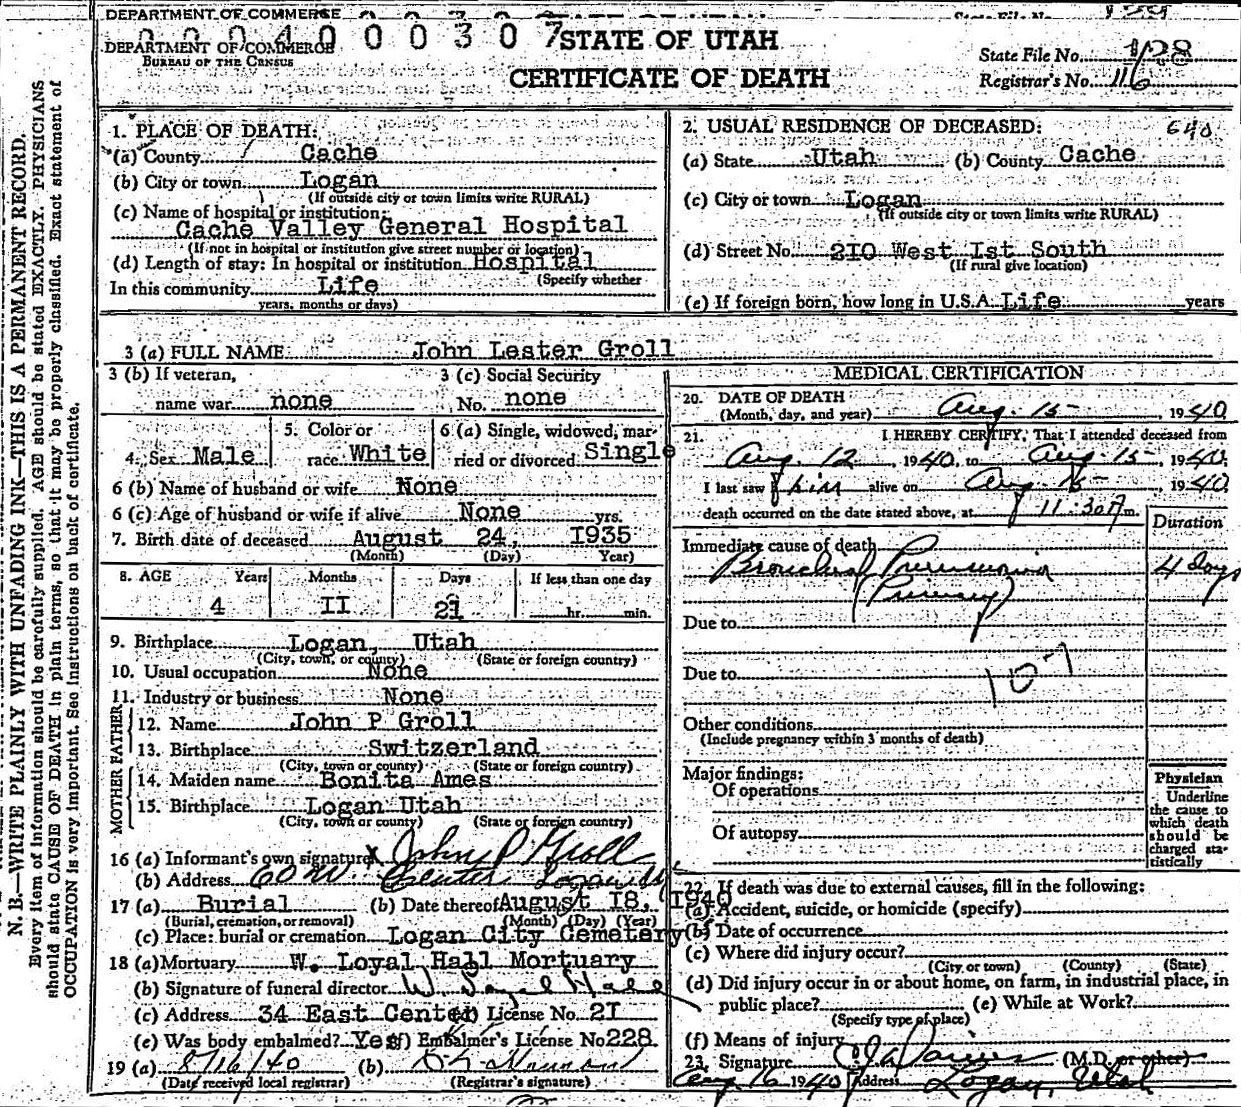 DEPARTMENT OF COMMERCE
0 0 0 4 0 0 0 3 0 7
DEPARTMENT OF COMMERCE
BUREAU OF THE CENSUS
STATE OF UTAH
CERTIFICATE OF DEATH
State File No.
State File No. 128
Registrar's No. 116
N. B.—WRITE PLAINLY WITH UNFADING INK—THIS IS A PERMANENT RECORD.
Every item of information should be carefully supplied. AGE should be stated EXACTLY. PHYSICIANS
should state CAUSE OF DEATH in plain terms, so that it may be properly classified. Exact statement of
OCCUPATION is very important. See instructions on back of certificate.
1. PLACE OF DEATH:
(a) County Cache
(b) City or town Logan
(If outside city or town limits write RURAL)
(c) Name of hospital or institution:
Cache Valley General Hospital
(If not in hospital or institution give street number or location)
(d) Length of stay: In hospital or institution Hospital
(Specify whether
In this community Life
years, months or days)
2. USUAL RESIDENCE OF DECEASED: 640
(a) State Utah (b) County Cache
(c) City or town Logan
(If outside city or town limits write RURAL)
(d) Street No. 2I0 West Ist South
(If rural give location)
(e) If foreign born, how long in U.S.A. Life years
3 (a) FULL NAME John Lester Groll
3 (b) If veteran,
name war none
3 (c) Social Security
No. none
4. Sex Male
5. Color or
race White
6 (a) Single, widowed, mar-
ried or divorced Single
6 (b) Name of husband or wife None
6 (c) Age of husband or wife if alive None yrs.
7. Birth date of deceased August 24, I935
(Month) (Day) Year)
8. AGE Years Months Days If less than one day
4 II 21 hr. min.
9. Birthplace Logan, Utah
(City, town, or county) (State or foreign country)
10. Usual occupation None
11. Industry or business None
FATHER
12. Name John P Groll
13. Birthplace Switzerland
(City, town or county) (State or foreign country)
MOTHER
14. Maiden name Bonita Ames
15. Birthplace Logan Utah
(City, town or county) (State or foreign country)
16 (a) Informant's own signature x John P Groll
(b) Address 60 W. Center Logan
17 (a) Burial (b) Date thereof August I8, I940
(Burial, cremation, or removal) (Month) (Day) (Year)
(c) Place: burial or cremation Logan City Cemetery
18 (a) Mortuary W. Loyal Hall Mortuary
(b) Signature of funeral director W. Loyal Hall
(c) Address 34 East Center License No. 2I
(e) Was body embalmed? Yes (f) Embalmer's License No 228
19 (a) 8/16/40 (b)
(Date received local registrar) (Registrar's signature)
MEDICAL CERTIFICATION
20. DATE OF DEATH
(Month, day, and year) Aug. 15 , 1940
21. I HEREBY CERTIFY, That I attended deceased from
Aug. 12 , 1940, to Aug. 15 , 1940.
I last saw him alive on Aug 15 , 1940
death occurred on the date stated above, at 11:30 m.
Duration
Immediate cause of death
Bronchial Pneumonia 4 days
(Primary)
Due to
Due to
107
Other conditions
(Include pregnancy within 3 months of death)
Major findings:
Of operations
Of autopsy
Physician
Underline
the cause to
which death
should be
charged sta-
tistically
22. If death was due to external causes, fill in the following:
(a) Accident, suicide, or homicide (specify)
(b) Date of occurrence
(c) Where did injury occur?
(City or town) (County) (State)
(d) Did injury occur in or about home, on farm, in industrial place, in
public place? (e) While at Work?
(Specify type of place)
(f) Means of injury
23. Signature (M.D. or other)
Aug 16 1940 Address Logan, Utah